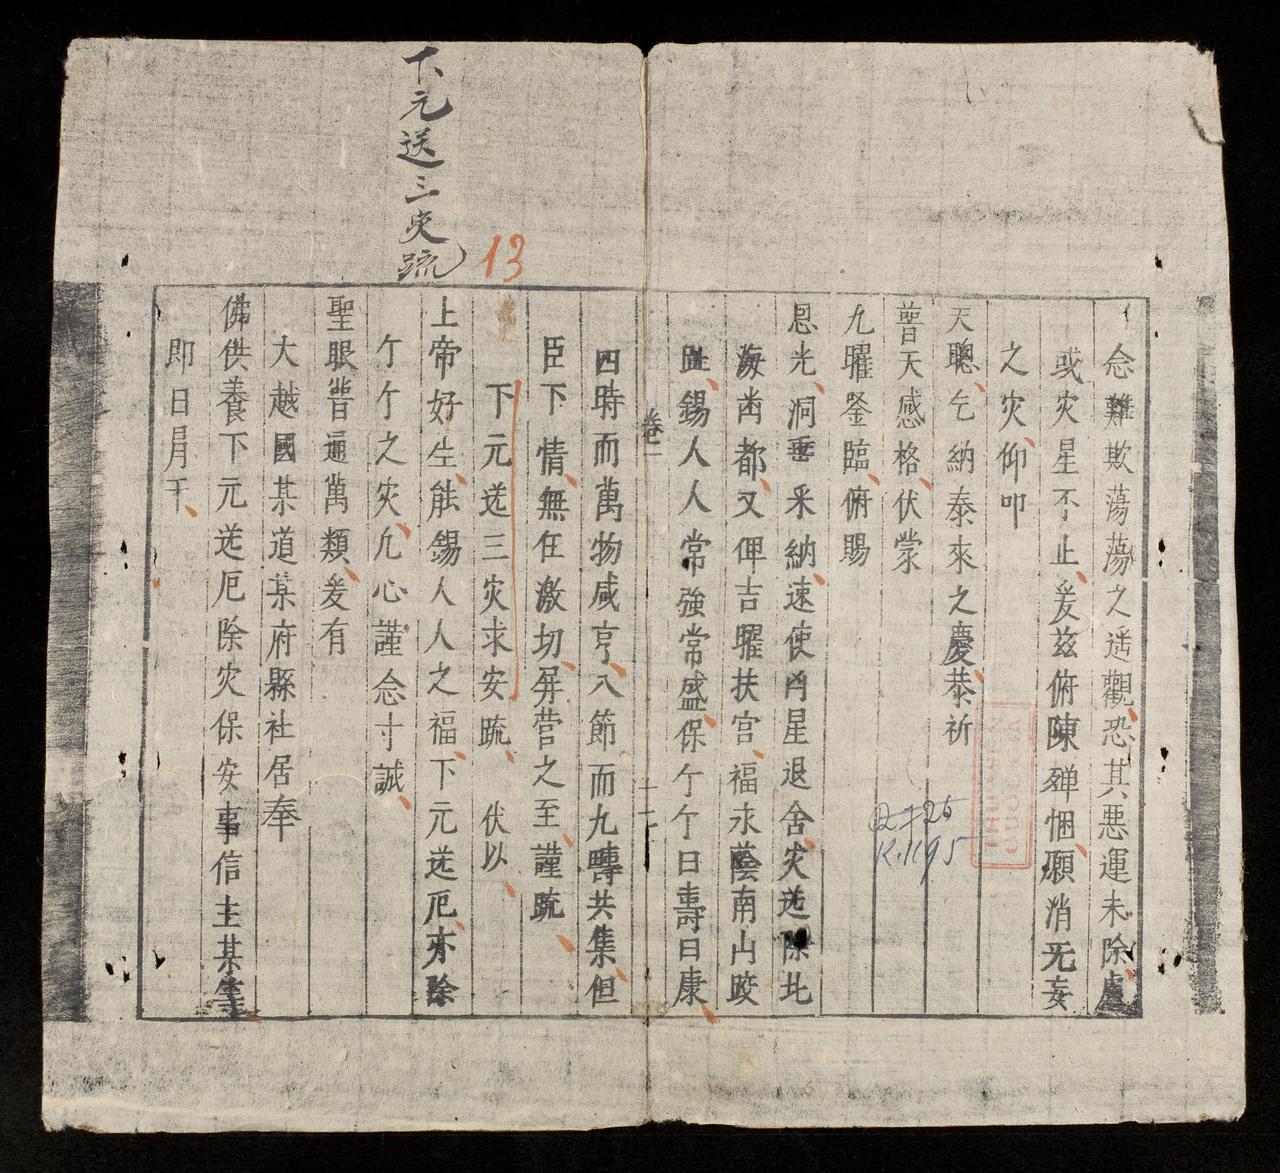 念難欺蕩蕩之遥觀恐其惡運未除慮
或灾星不止爰兹俯陳殫悃願消无妄
之灾仰叩
天聰乞納泰來之慶恭祈
普天感格伏蒙
九曜鑒臨俯賜
恩光洞垂采納速使凶星退舍灾送陳北
海酋都又俾吉曜扶宫福永蔭南山
錫人人常強常盛保亇亇曰壽曰康
卷二
十二
四時而萬物咸亨八節而九疇共集但
臣下情無任激切屏营之至謹疏
下元送三灾求安疏 伏以
上帝好生能錫人人之福下元送厄亦除
亇亇之灾凢心謹念寸誠
聖眼普通萬類爰有
大越國某道某府縣社居奉
佛供養下元送厄除灾保安事信主某等
即日冐干
下元送三灾疏
13
Q.725
R.1195